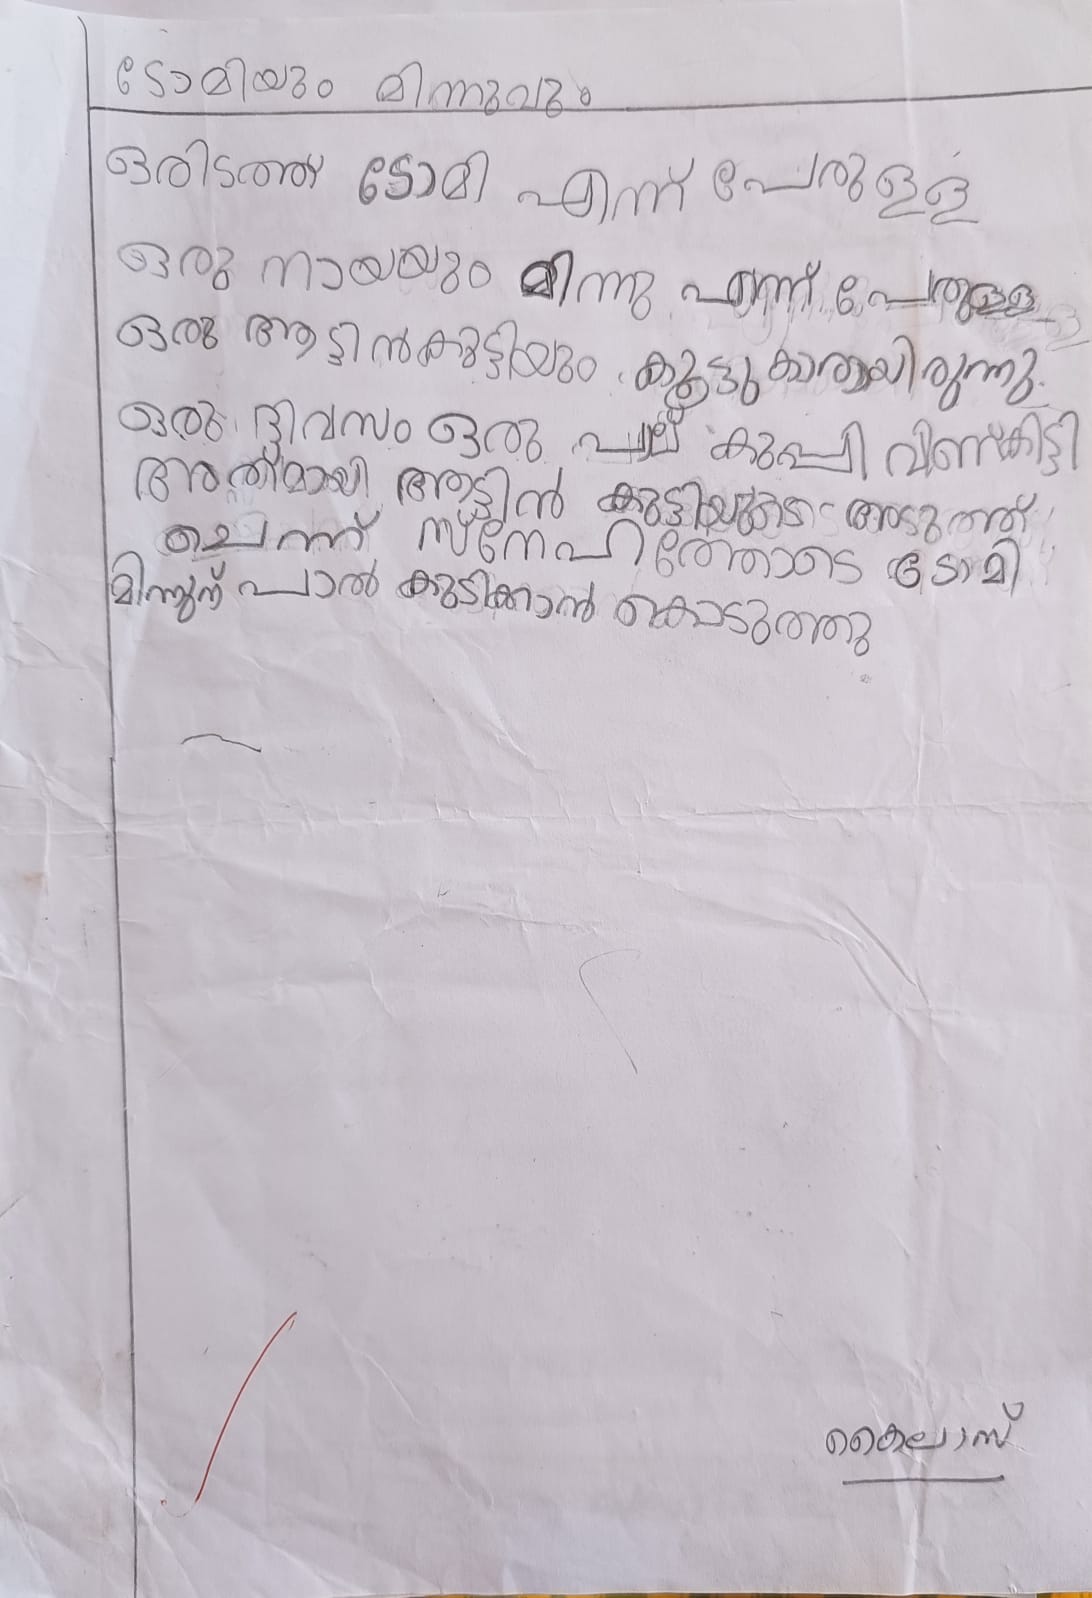 ടോമിയും മിന്നുവും
ഒരിടത്ത് ടോമി എന്ന് പേരുള്ള
ഒരു നായയും മിന്നു എന്ന് പേരുള്ള
ഒരു ആട്ടിൻകുട്ടിയും കൂട്ടുകാരായിരുന്നു.
ഒരു ദിവസം ഒരു പാല് കുപ്പി വീണ്കിട്ടി
അതുമായി ആട്ടിൻ കുട്ടിയുടെ അടുത്ത്
ചെന്ന് സ്നേഹിത്തോടെ ടോമി
മിന്നുന് പാൽ കുടിക്കാൻ കൊടുത്തു
കൈലാസ്